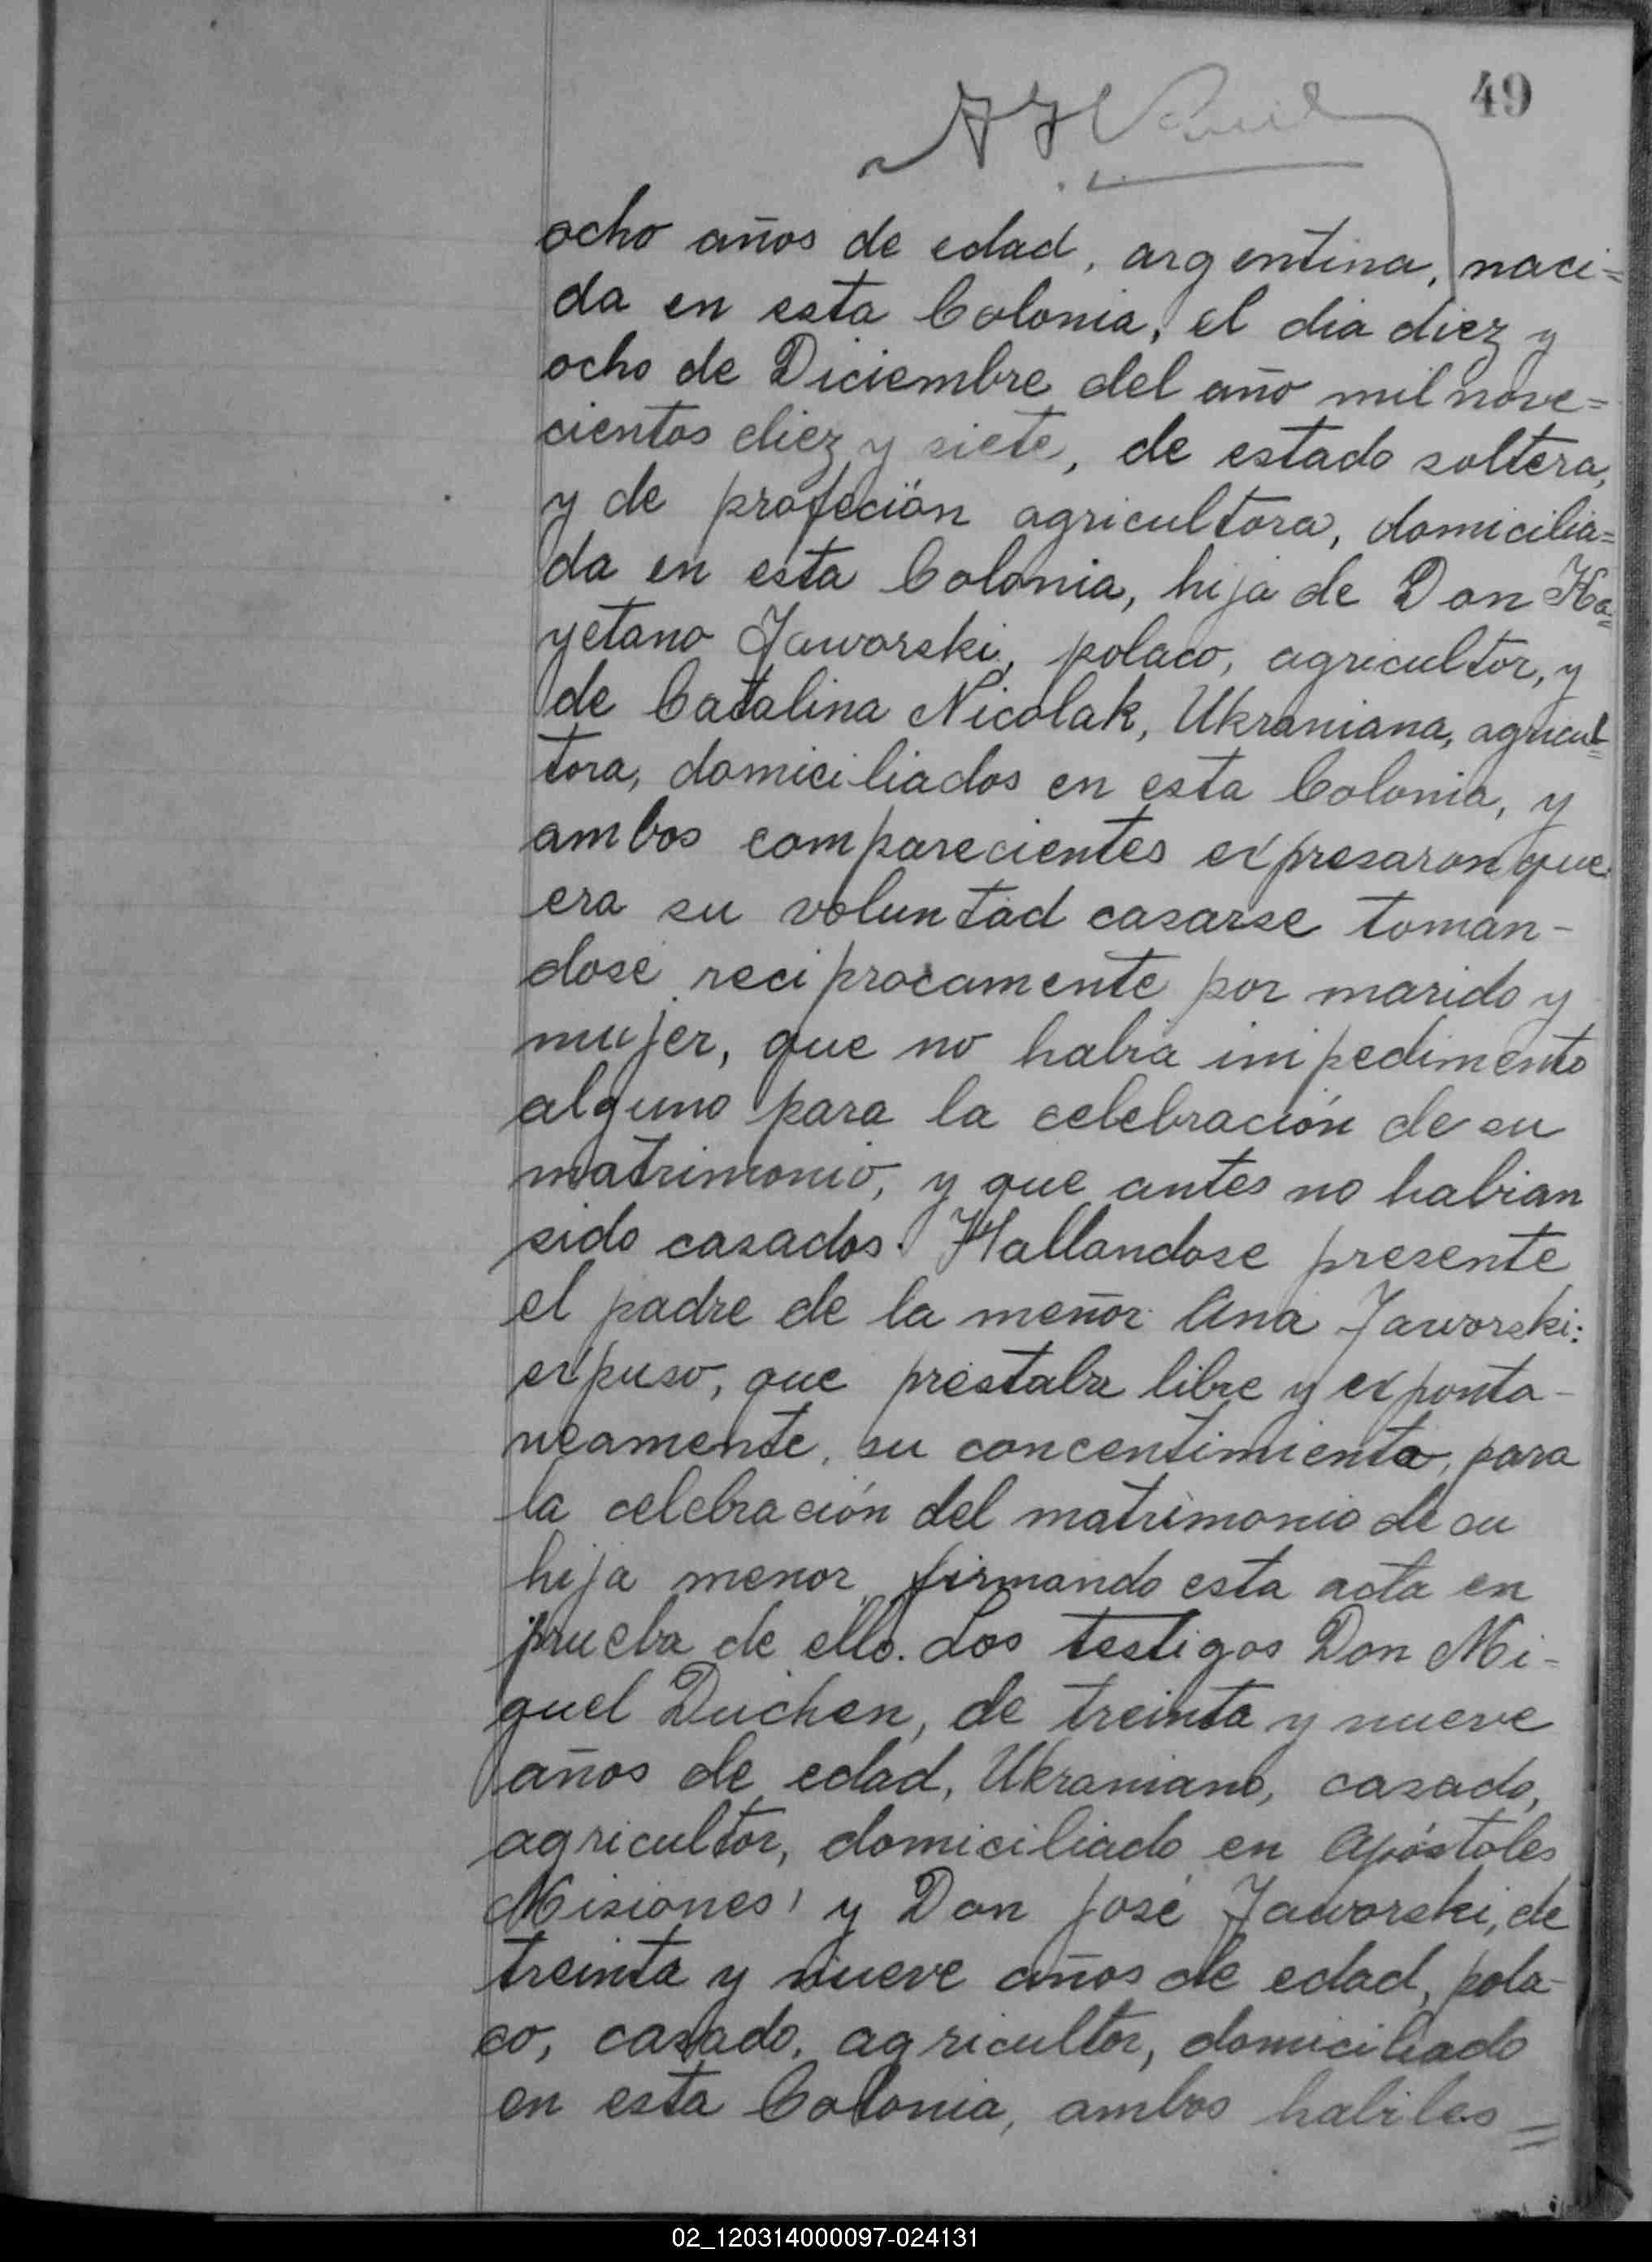 49
ocho años de edad, argentina, naci=
da en esta Colonia, el dia diez y
ocho de Diciembre del año mil nove=
cientos diez y siete, de estado soltera,
y de profeción agricultora, domicilia=
da en esta Colonia, hija de Don Ka=
yetano Jaworski, polaco, agricultor, y
de Catalina Nicolak, Ukraniana, agricul=
tora, domiciliados en esta Colonia, y
ambos comparecientes expresaron que
era su voluntad casarse toman-
dose reciprocamente por marido y
mujer, que no habia impedimento
alguno para la celebración de su
matrimonio, y que antes no habian
sido casados. Hallandose presente
el padre de la menor Ana Jaworski:
expuso, que prestaba libre y exponta-
neamente, su concentimiento, para
la celebración del matrimonio de su
hija menor, firmando esta acta en
prueba de ello. Los testigos Don Mi-
guel Duchen, de treinta y nueve
años de edad, Ukraniano, casado,
agricultor, domiciliado en Apóstoles
Misiones, y Don José Jaworski, de
treinta y nueve años de edad, pola-
co, casado, agricultor, domiciliado
en esta Colonia, ambos habiles =
02_120314000097-024131